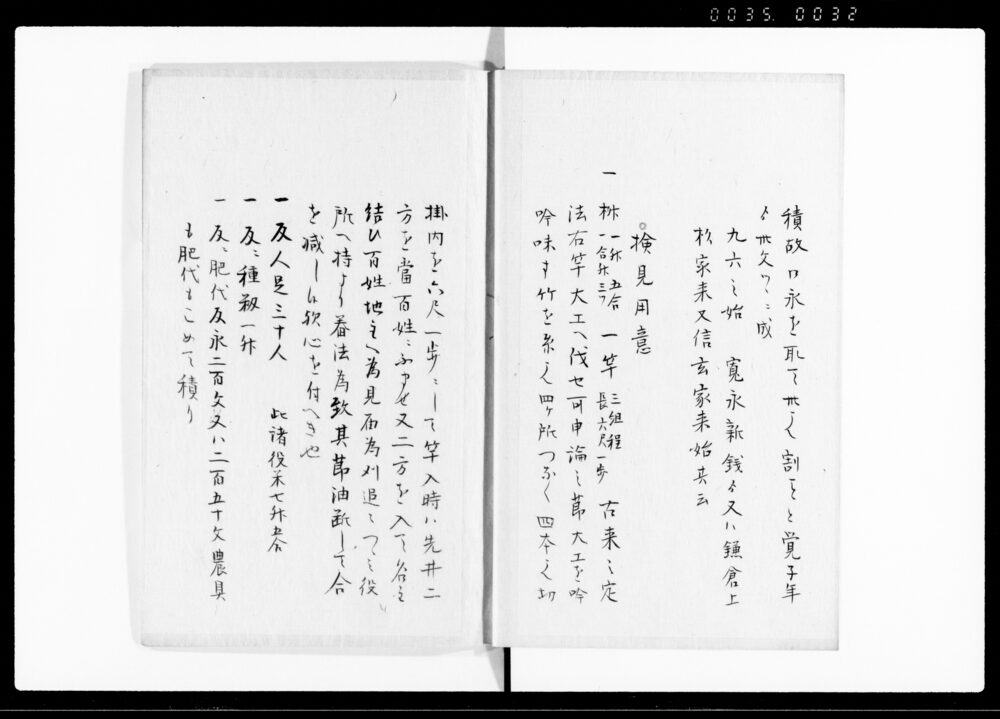 0035. 0032
積故口永を取て卅ニ而割ると覚子年
ゟ卅文ツヽニ成
九六之始 寛永新銭ゟ又ハ鎌倉上
杉家来又信玄家来始共云
検見用意
一 桝 一升 五合 一合升三ツ 一竿 三組程 長六尺一歩 古来之定
法右竿大工ヘ伐セ可申論之節大工を吟
吟味す竹を糸ニ而四ヶ所つなく四本ニ而切
掛内を六尺一歩ニして竿入時ハ先井二
方を當百姓ニふませ又二方を入て
結ひ百姓地主ヘ為見届為刈追々つヽ役
所ヘ持より舂法為致其節油断して合
を減し候欲心を付ヘき也
一 反人足三十人 此諸役米七升五合
一 反ニ種籾一升
一 反ニ肥代反永二百文又ハ二百五十文農具
も肥代もこめて積り